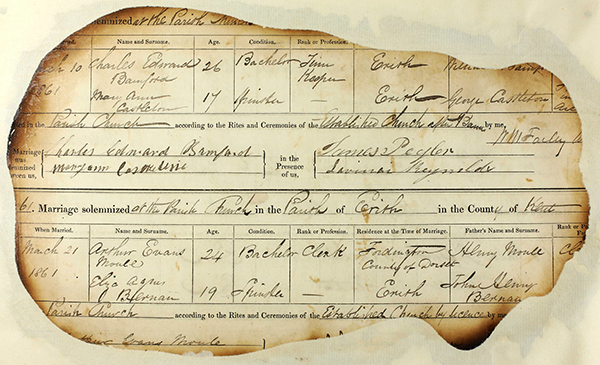 solemnized at the Parish
Married. Name and Surname. Age. Condition. Rank or Profession.
10 Charles Edward 26 Bachelor Time Erith
1861 Bamford Keeper
Mary Ann 17 Spinster — Erith George Castleton
Castleton
in the Parish Church according to the Rites and Ceremonies of the Established Church after Banns by me,
Marriage Charles Edward Bamford in the James Pegler
was
solemnized mary ann Presence
between us, of us. Reynolds
61. Marriage solemnized at the Parish Church in the Parish of Erith in the County of Kent
When Married. Name and Surname. Age. Condition. Rank or Profession. Residence at the Time of Marriage. Father's Name and Surname. Rank or
March 21 Arthur Evans 24 Bachelor Clerk Fordington Henry Moule
1861 Moule County of Dorset
Eliza Agnes 19 Spinster — Erith John Henry
Bernau Bernau
Parish Church according to the Rites and Ceremonies of the Established Church by licence by me
Evans Moule